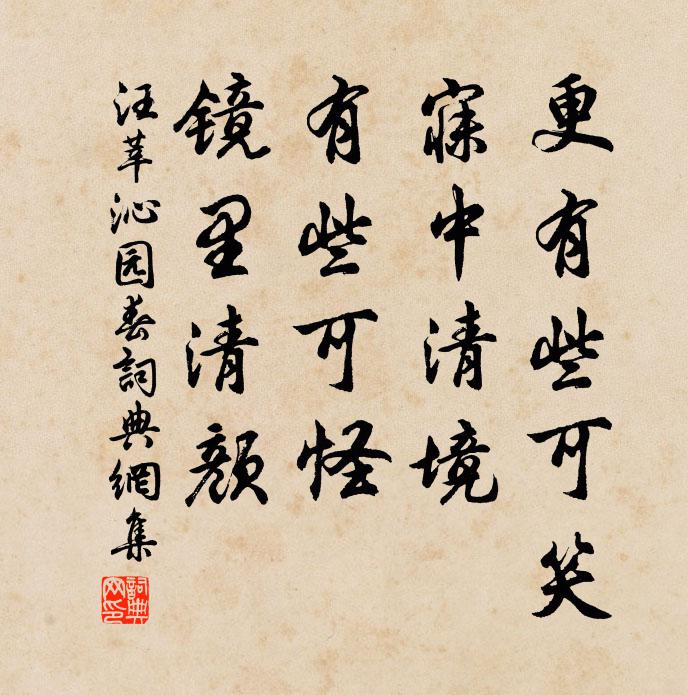 更有些可笑
寐中清境
有些可怪
镜里清颜
汪莘沁园春詞典網集
詞典网印